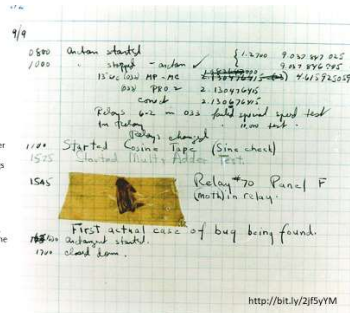 9/9
0800 antan started
1000 " stopped - antan ✓ { 1.2700 9.037 847 025
9.037 846 995
13" uc (032) MP - MC 4.615925059
(033) PRO 2 2.130476415
conect 2.130676415
Relays 6-2 in 033 failed special speed test
in relay " 10.000 test.
Relays changed
1100 Started Cosine Tape (Sine check)
1525 Started Mult+Adder Test.
1545 Relay #70 Panel F
(moth) in relay.
First actual case of bug being found.
antangent started.
1700 closed down.
http://bit.ly/2jf5yYM